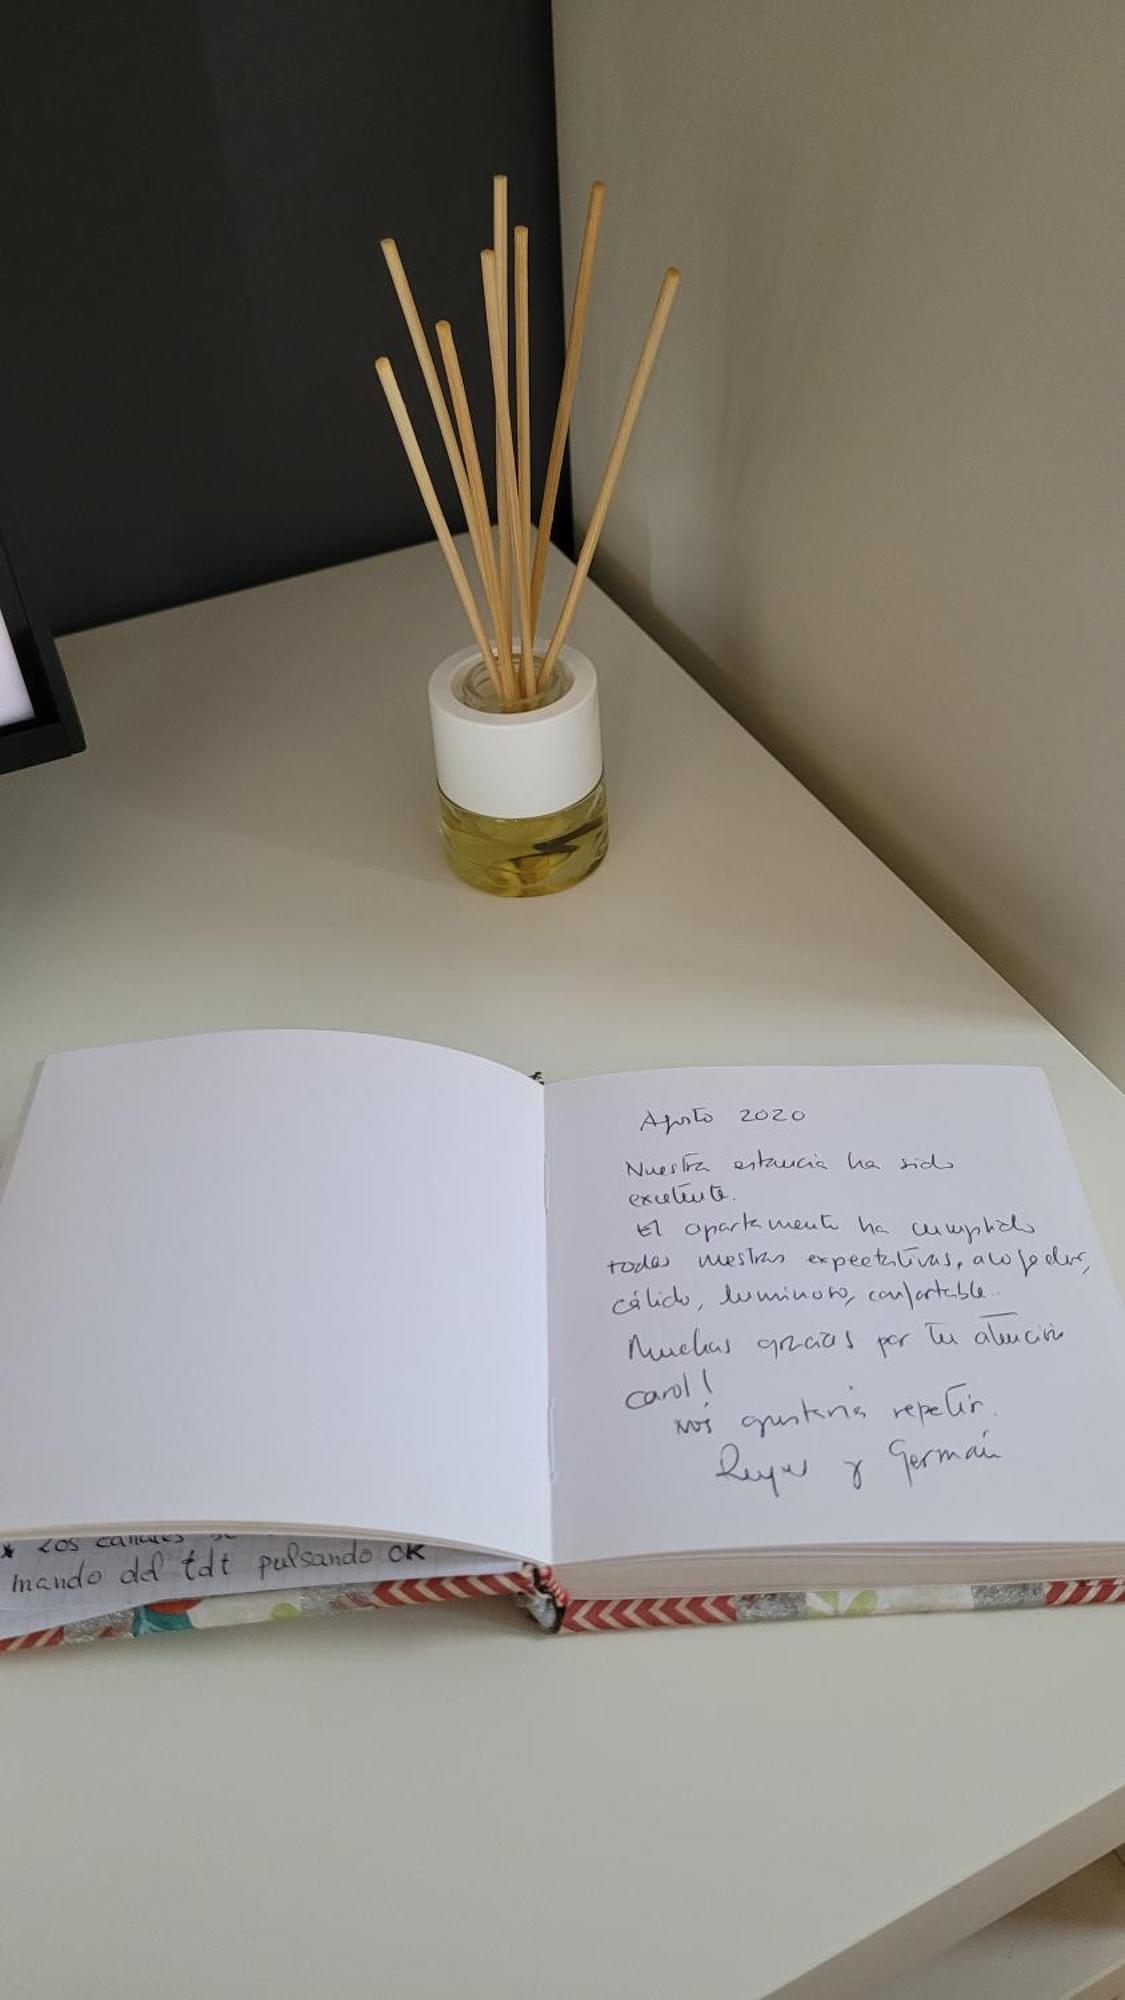 Agosto 2020
Nuestra estancia ha sido
excelente.
El apartamento ha cumplido
todas nuestras expectativas, acogedor,
cálido, luminoso, confortable..
Muchas gracias por tu atención
Carol!
Nos gustaría repetir.
Reyes y Germán
* Los canales se
mando del tdt pulsando OK